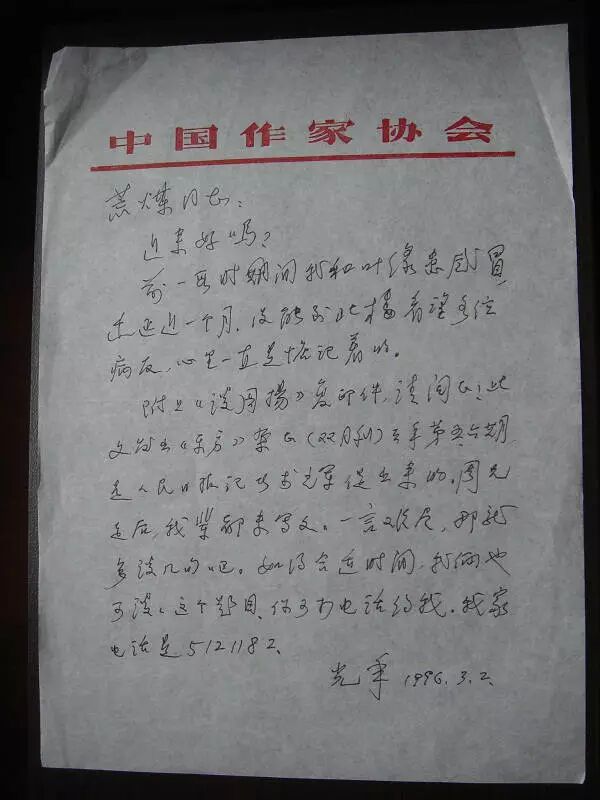 中国作家协会
荒煤同志：
近来好吗？
前一段时期间我和叶缘患感冒
迁延近一个月，没能到北楼看望各位
病友，心里一直是惦记着的。
附上《谈周扬》复印件，请阅正；此
文发出《东方》杂志（双月刊）去年第五六期，
是人民日报记者李光军促出来的。周
后，我都未写文。一言难尽，那就
多谈几句吧。如得合适时间，我俩也
可谈谈这个题目，你可打电话约我。我家
电话是5121182、
光年 1996.3.2.